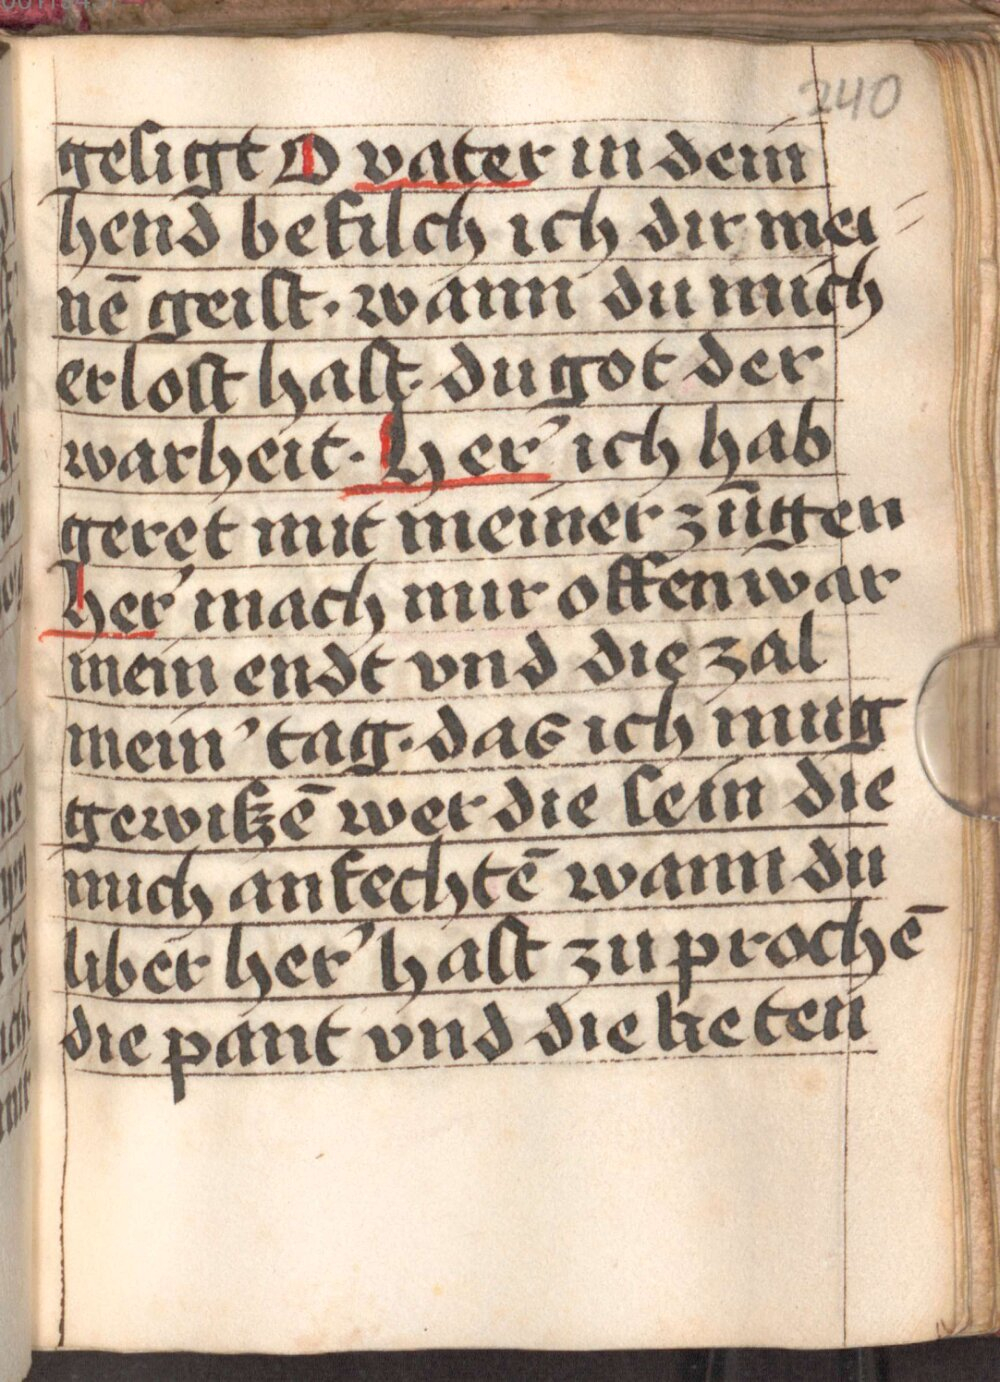 240
gesigt O vater in dein
hend befilch ich dir mei
nē geist · wann du mich
erlost hast · du got der
warheit · her’ ich hab
geret mit meiner zūgen
her’ mach mir offenwar
mein endt vnd die zal
mein’ tag · das ich mug
gewiszē wer die sein die
mich anfechtē wann du
liber her’ hast zuprochē
die pant vnd die keten